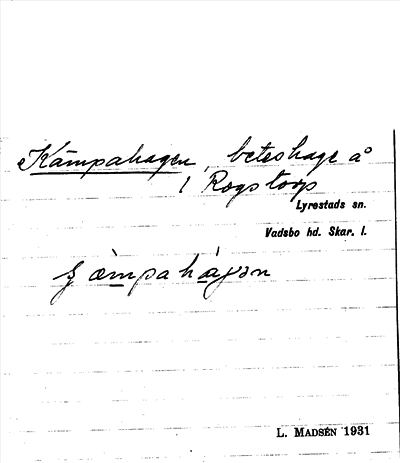 Kämpahagen, beteshage å
1 Rogstorp
Lyrestads sn.
Vadsbo hd. Skar. l.
L. MADSÉN 1931